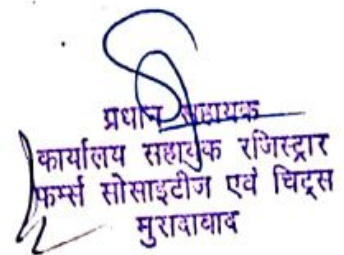 प्रधान सहायक
कार्यालय सहायक रजिस्ट्रार
फर्म्स सोसाइटीज एवं चिट्स
मुरादाबाद